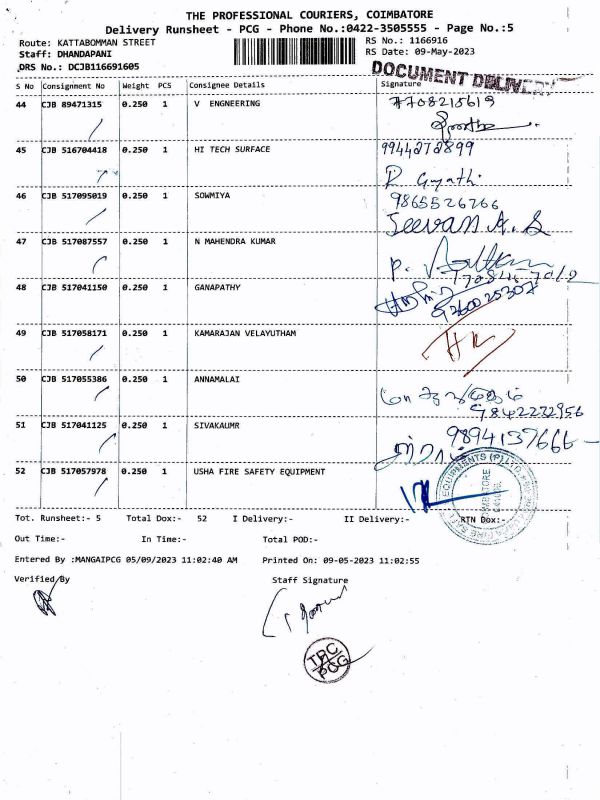 THE PROFESSIONAL COURIERS, COIMBATORE
Delivery Runsheet - PCG - Phone No.:0422-3505555 - Page No.:5
Route: KATTABOMMAN STREET RS No.: 1166916
Staff: DHANDAPANI RS Date: 09-May-2023
DRS No.: DCJB116691605 DOCUMENT DELIVERY
S No Consignment No Weight PCS Consignee Details Signature
44 CJB 89471315 0.250 1 V ENGNEERING 7708215619
45 CJB 516704418 0.250 1 HI TECH SURFACE 9944272899
R Gayathi
46 CJB 517095019 0.250 1 SOWMIYA 9865526266
Jeevan A.S
47 CJB 517087557 0.250 1 N MAHENDRA KUMAR
48 CJB 517041150 0.250 1 GANAPATHY
9360025307
49 CJB 517058171 0.250 1 KAMARAJAN VELAYUTHAM
50 CJB 517055386 0.250 1 ANNAMALAI
9842232956
51 CJB 517041125 0.250 1 SIVAKAUMR 9894137666
52 CJB 517057978 0.250 1 USHA FIRE SAFETY EQUIPMENT
Tot. Runsheet:- 5 Total Dox:- 52 I Delivery:- II Delivery:- RTN Dox:-
Out Time:- In Time:- Total POD:-
Entered By :MANGAIPCG 05/09/2023 11:02:40 AM Printed On: 09-05-2023 11:02:55
Verified By Staff Signature
TPC
PCG